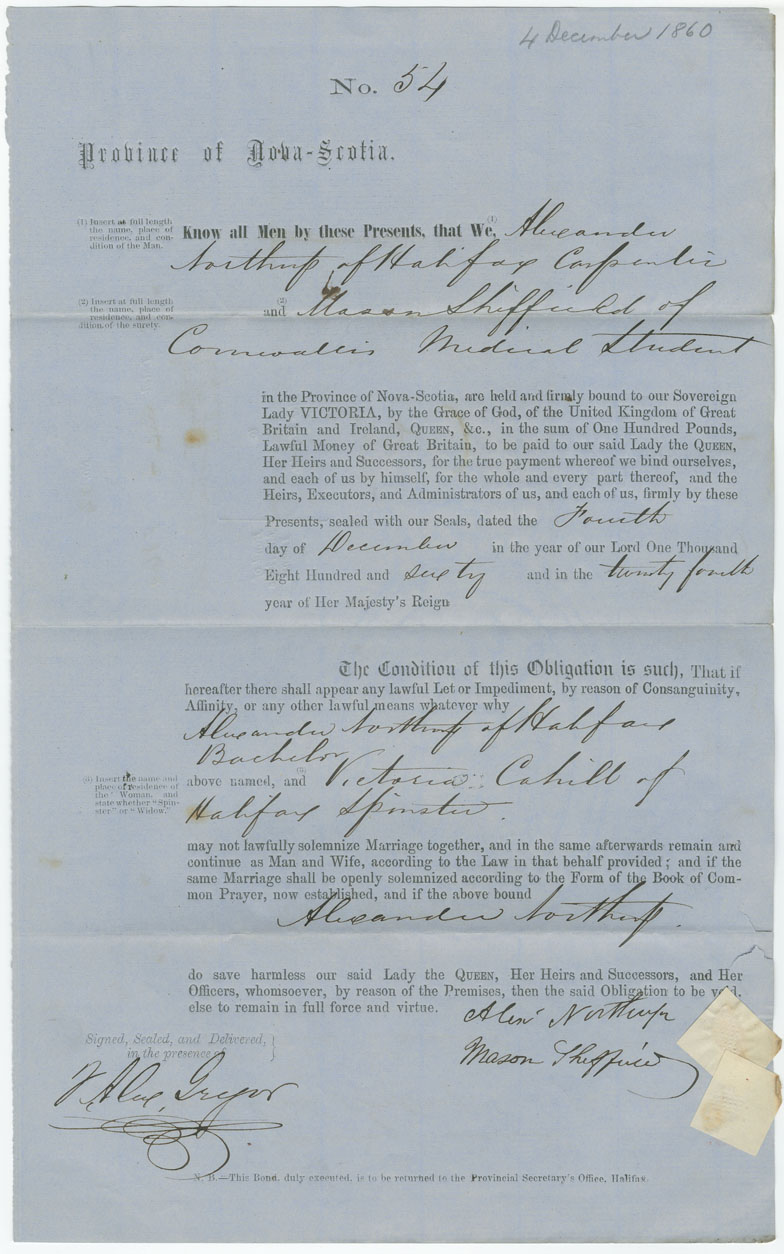 4 December 1860
No. 54
Province of Nova-Scotia.
(1) Insert at full length
the name, place of
residence, and con-
dition of the Man.
Know all Men by these Presents, that We, (1) Alexander
Northup of Halifax Carpenter
(2) Insert at full length
the name, place of
residence, and con-
dition of the surety.
(2)
and Mason Sheffield of
Cornwallis Medical Student
in the Province of Nova-Scotia, are held and firmly bound to our Sovereign
Lady VICTORIA, by the Grace of God, of the United Kingdom of Great
Britain and Ireland, QUEEN, &c., in the sum of One Hundred Pounds,
Lawful Money of Great Britain, to be paid to our said Lady the QUEEN,
Her Heirs and Successors, for the true payment whereof we bind ourselves,
and each of us by himself, for the whole and every part thereof, and the
Heirs, Executors, and Administrators of us, and each of us, firmly by these
Presents, sealed with our Seals, dated the Fourth
day of December in the year of our Lord One Thousand
Eight Hundred and sixty and in the twenty fourth
year of Her Majesty's Reign
The Condition of this Obligation is such, That if
hereafter there shall appear any lawful Let or Impediment, by reason of Consanguinity,
Affinity, or any other lawful means whatever why
Alexander Northup of Halifax
Bachelor
above named, and Victoria Cahill of
Insert the name and
place of residence of
the Woman, and
state whether "Spin-
ster" or "Widow."
Halifax Spinster.
may not lawfully solemnize Marriage together, and in the same afterwards remain and
continue as Man and Wife, according to the Law in that behalf provided; and if the
same Marriage shall be openly solemnized according to the Form of the Book of Com-
mon Prayer, now established, and if the above bound
Alexander Northup.
do save harmless our said Lady the QUEEN, Her Heirs and Successors, and Her
Officers, whomsoever, by reason of the Premises, then the said Obligation to be void,
else to remain in full force and virtue.
Alexr Northup
Signed, Sealed, and Delivered,
in the presence
Mason Sheffield
Alex. Gregor
N. B.—This Bond, duly executed, is to be returned to the Provincial Secretary's Office, Halifax.